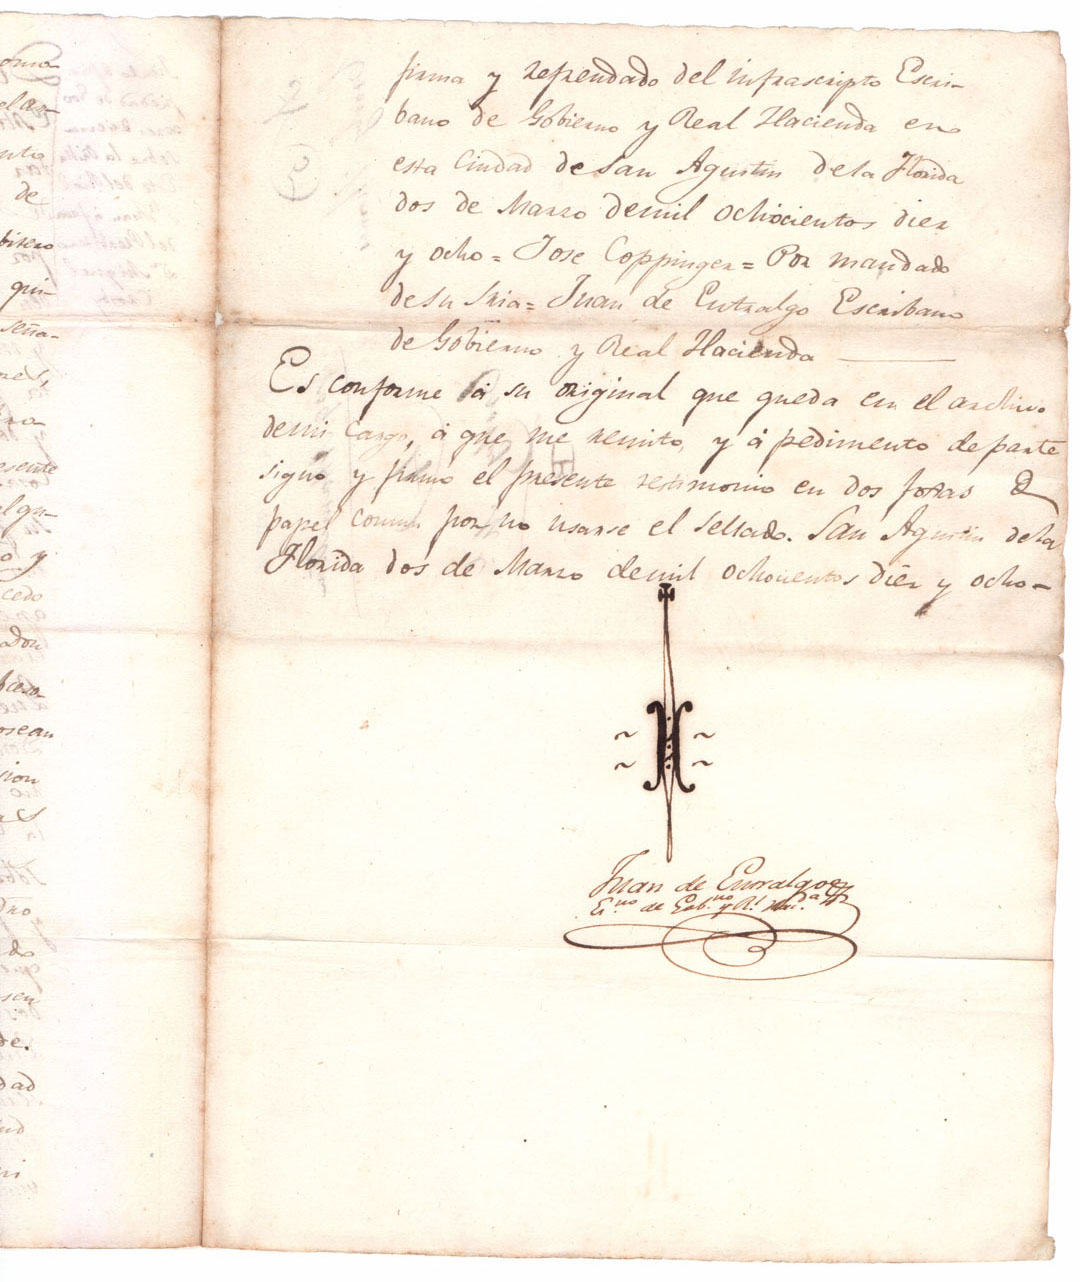 firma y refrendado del infrascripto Escri-
bano de Gobierno y Real Hacienda en
esta Ciudad de San Agustin dela Florida
dos de Marzo demil ochocientos diez
y ocho = Jose Coppinger = Por mandado
de Su Sria = Juan de Entralgo Escribano
de Gobierno y Real Hacienda
Es conforme á su original que queda en el archivo
demi cargo, á que me remito, y á pedimento de parte
signo y firmo el presente testimonio en dos fojas de
papel comun por no usarse el sellado. San Agustin dela
Florida dos de Marzo demil ochocientos diez y ocho =
Juan de Entralgo
Es.no de Gob.no y R.l Haz.da
orma
nto
de
bitero
qui-
seña-
esente
y
cedo
osean
sion
do
sen
de.
dad